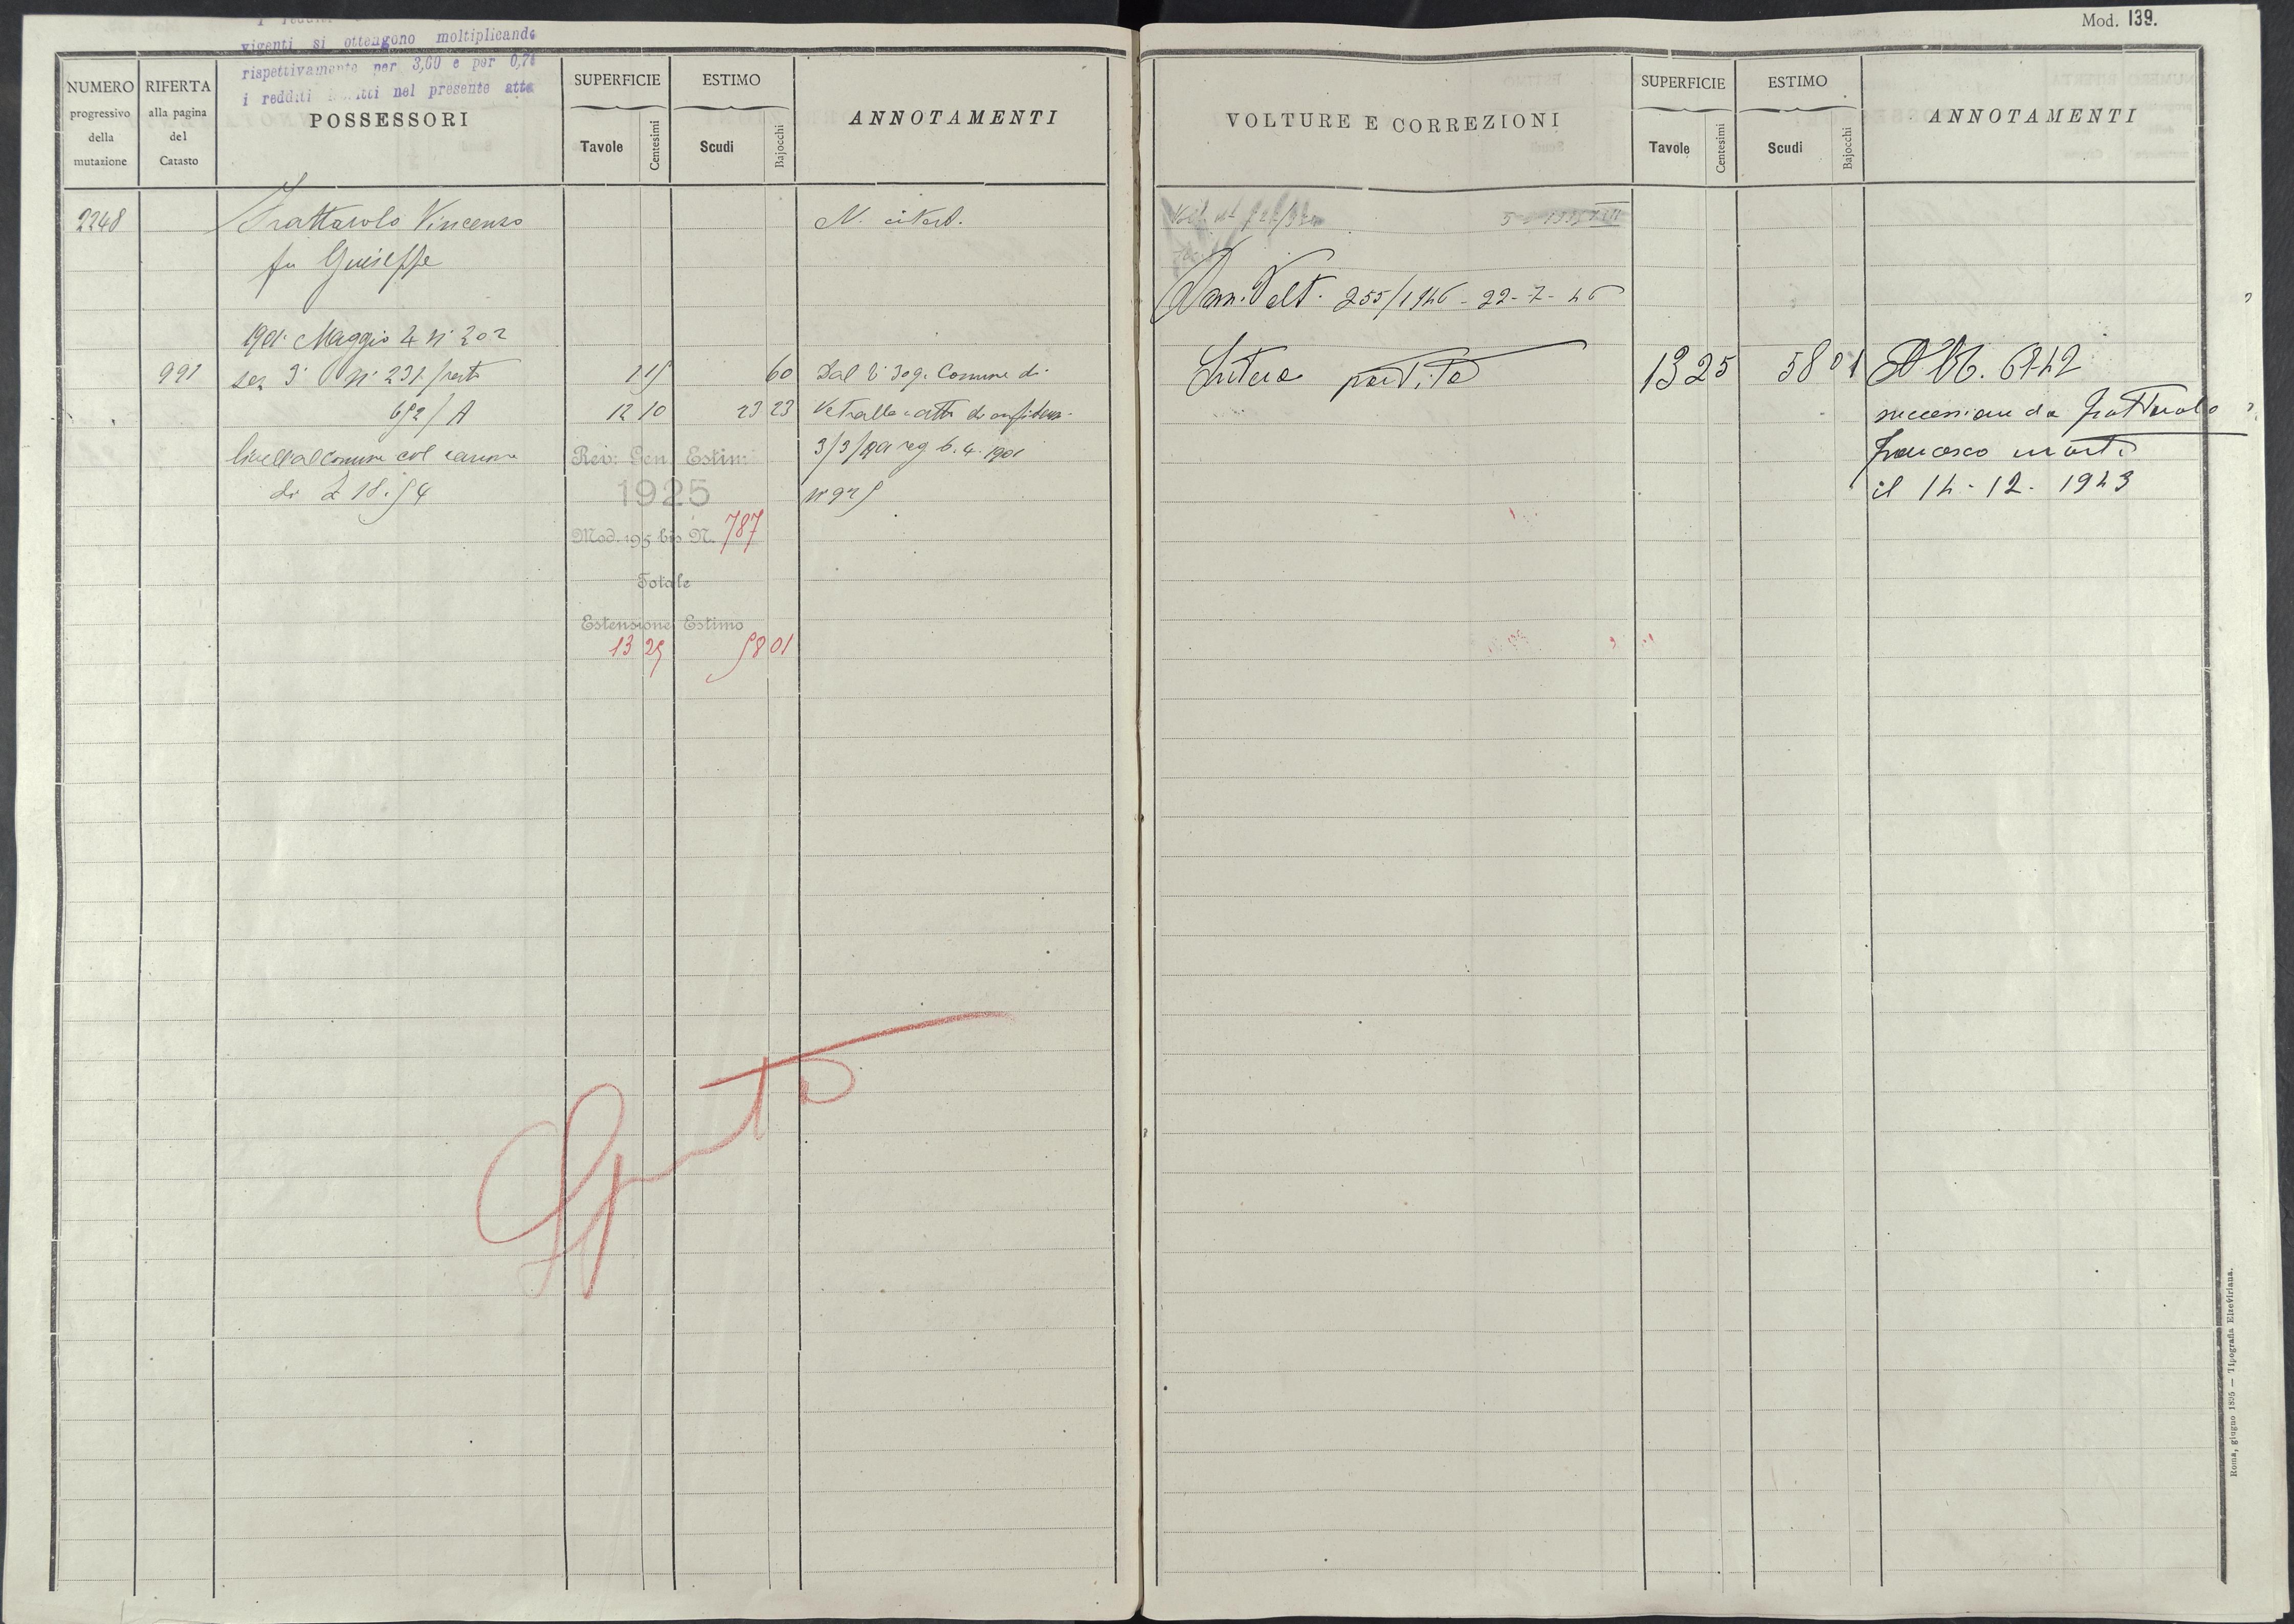 Mod. 139.
vigenti si ottengono moltiplicando
rispettivamente per 3,60 e per 0,7
i redditi nel presente atto
NUMERO progressivo della mutazione
RIFERTA alla pagina del Catasto
POSSESSORI
SUPERFICIE
Tavole Centesimi
ESTIMO
Scudi Bajocchi
ANNOTAMENTI
2248 Frattarolo Vincenzo
fu Giuseppe
1901 Maggio 4 n° 202
991 sez 3ª n° 231 / resto 1 15 60 Dal Comune di
692 / A 12 10 23 23 Vetralla atto di
livell al comune col canone 3/3/901 reg 6.4.1901
di £ 18.54
Rev. Gen. Estimi
1925
Mod. 195 bis N. 787
Totale
Estensione Estimo
13 25 58 01
Spenta
VOLTURE E CORREZIONI
SUPERFICIE
Tavole Centesimi
ESTIMO
Scudi Bajocchi
ANNOTAMENTI
Volt. 255/1946 - 22-7-46
Intera partita 13 25 58 01 6742
successione da Frattarolo
Francesco morto
il 14-12-1943
Roma, giugno 1895 — Tipografia Elzeviriana.